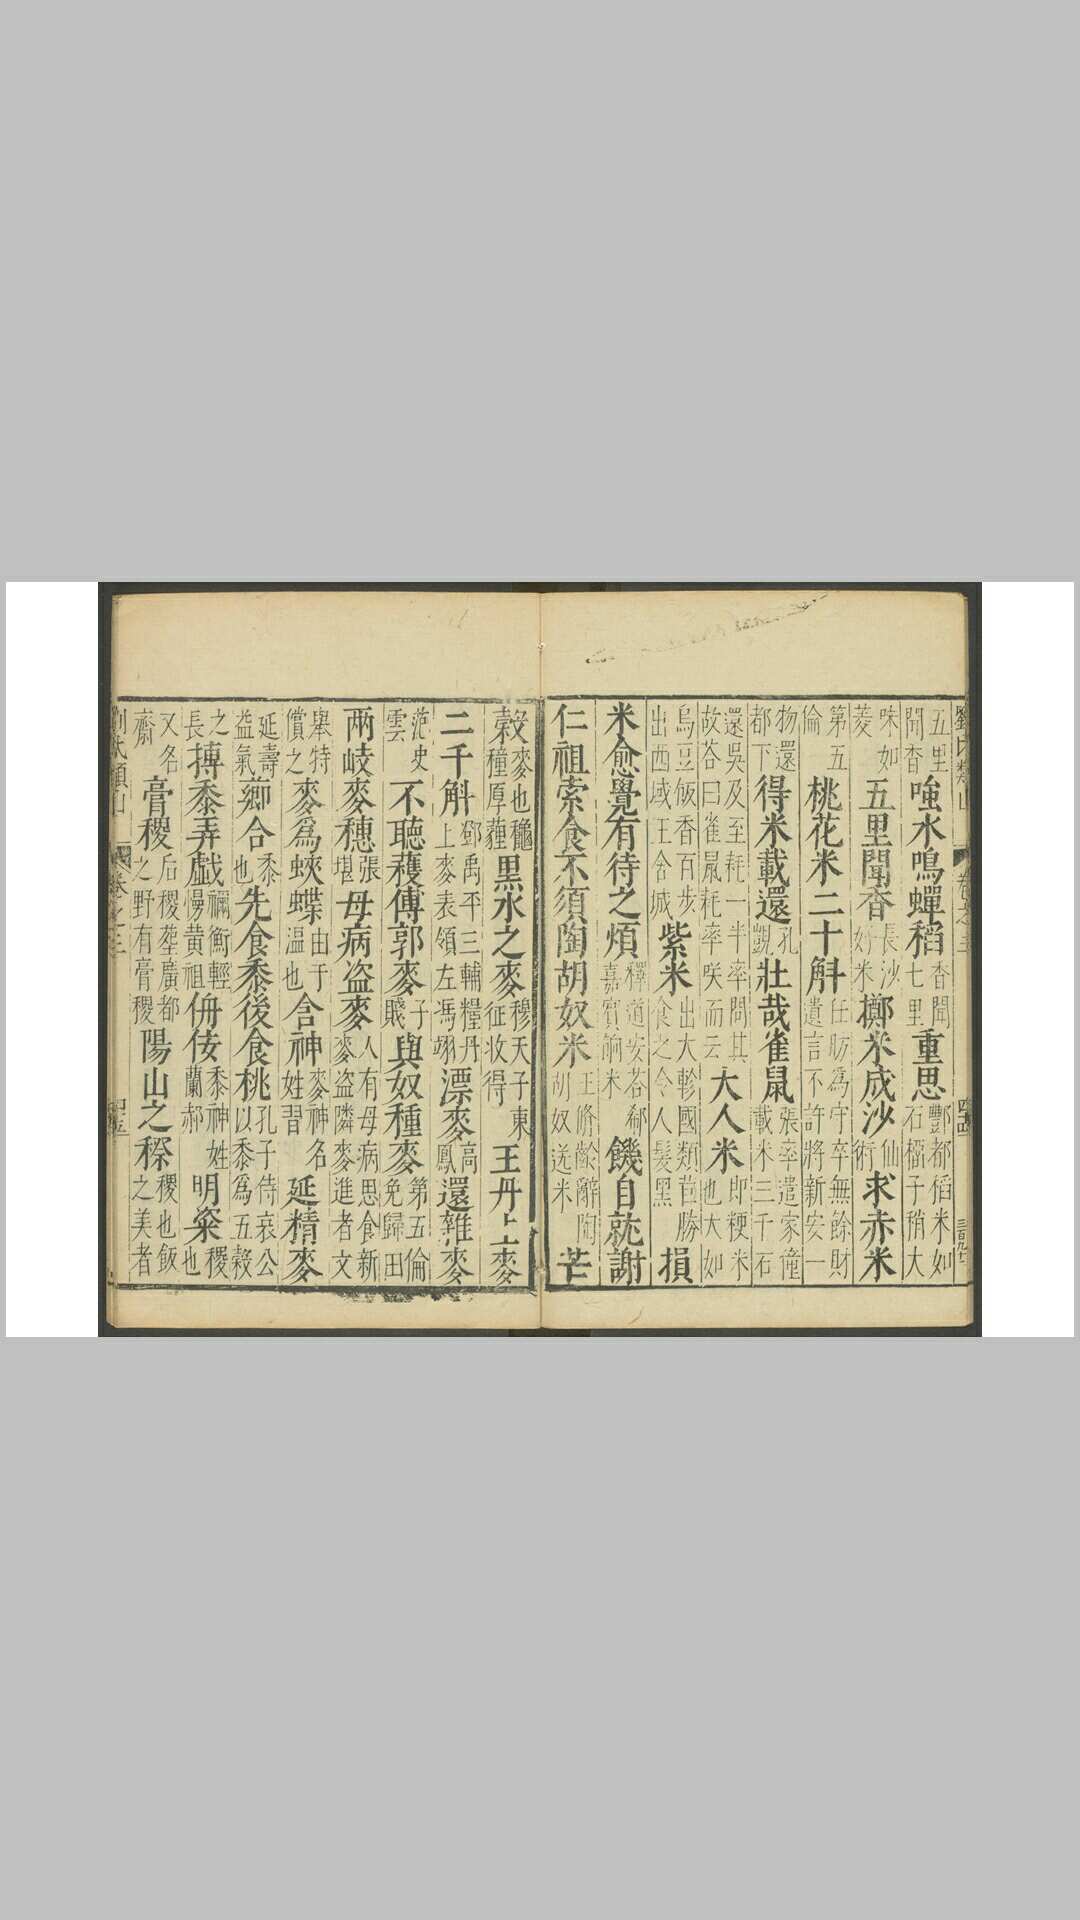 劉氏類山 卷之三 四十四
五里聞香嗤水鳴蟬稻香聞七里重思酆都稻米如石榴子稍大
味如菱五里聞香長沙好米擲米成沙仙術求赤米
第五倫桃花米二十斛任昉為守卒無餘財遺言不許將新安一
物還都下得米載還孔覬壯哉雀鼠張率遣家僮載米三千石
還吳及至耗一半率問其故荅曰雀鼠耗率咲而云大人米即粳米也大如
烏豆飯香百步出西域王舍城紫米出大軫國類苣勝食之令人髮黑損
米愈覺有待之煩釋道安荅郗嘉賓餉米饑自就謝
仁祖索食不須陶胡奴米王脩齡辭陶胡奴送米芒
穀麥也龝種厚薶黑水之麥穆天子東征收得王丹上麥
二千斛鄧禹平三輔糧丹上麥表領左馮翊漂麥高鳳還雜麥
范史雲不聽穫傅郭麥子賤與奴種麥第五倫免歸田
两岐麥穗張堪母病盗麥人有母病思食新麥盗隣麥進者文
舉特償之麥爲蛺蝶由于溫也含神麥神名姓習延精麥
延壽益氣薌合黍也先食黍後食桃孔子侍哀公以黍為五穀
之長摶黍弄戯禰衡輕慢黄祖侜侒黍神姓蘭郝明粢稷也
又名齋膏稷后稷塟廣都之野有膏稷陽山之穄稷也飯之美者
劉氏類山 卷之三 四十五